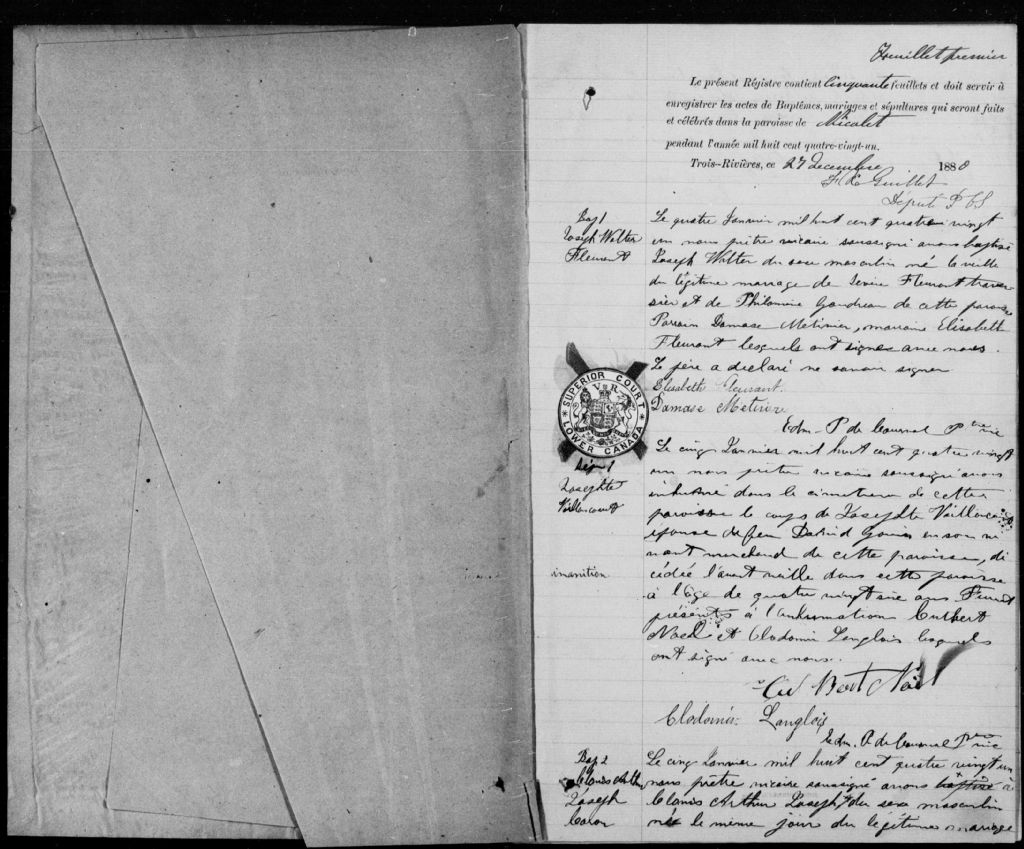 Feuillet premier
Le présent Régistre contient Cinquante feuillets et doit servir à
enregistrer les actes de Baptêmes, mariages et sépultures qui seront faits
et célébrés dans la paroisse de Nicolet
pendant l'année mil huit cent quatre-vingt-un.
Trois-Rivières, ce 27 décembre 1880
Guillet
Député P C S
Bap 1
Joseph Walter
Fleurant
Le quatre Janvier mil huit cent quatre vingt
un nous prêtre vicaire soussigné avons baptisé
Joseph Walter du sexe masculin né la veille
du légitime mariage de Fleurant traver
sier et de Philomène Gaudreau de cette paroisse
Parrain Damase Metivier, marraine Elisabeth
Fleurant lesquels ont signés avec nous.
Le père a déclaré ne savoir signer
Elisabeth Fleurant.
Damase Metivier
Edm. P de Courval Ptre vic
SUPERIOR COURT
V R
LOWER CANADA
Sép 1
Josephte
Vaillancourt
inanition
Le cinq Janvier mil huit cent quatre vingt
un nous prêtre vicaire soussigné avons
inhumé dans le cimetière de cette
paroisse le corps de Josephte Vaillancourt
épouse de feu David en son vi
vant marchand de cette paroisse, dé
cédée l'avant veille dans cette paroisse
à l'âge de quatre vingt six ans. Furent
présents à l'inhumation Cuthbert
Noël et Clodomir Langlois lesquels
ont signé avec nous.
Cu Bert Noël
Clodomir Langlois
Edm. P. de Courval Ptre vic
Bap 2
Clovis Arthur
Joseph
Caron
Le cinq Janvier mil huit cent quatre vingt un
nous prêtre vicaire soussigné avons baptisé
Clovis Arthur Joseph du sexe masculin
né le même jour du légitime mariage